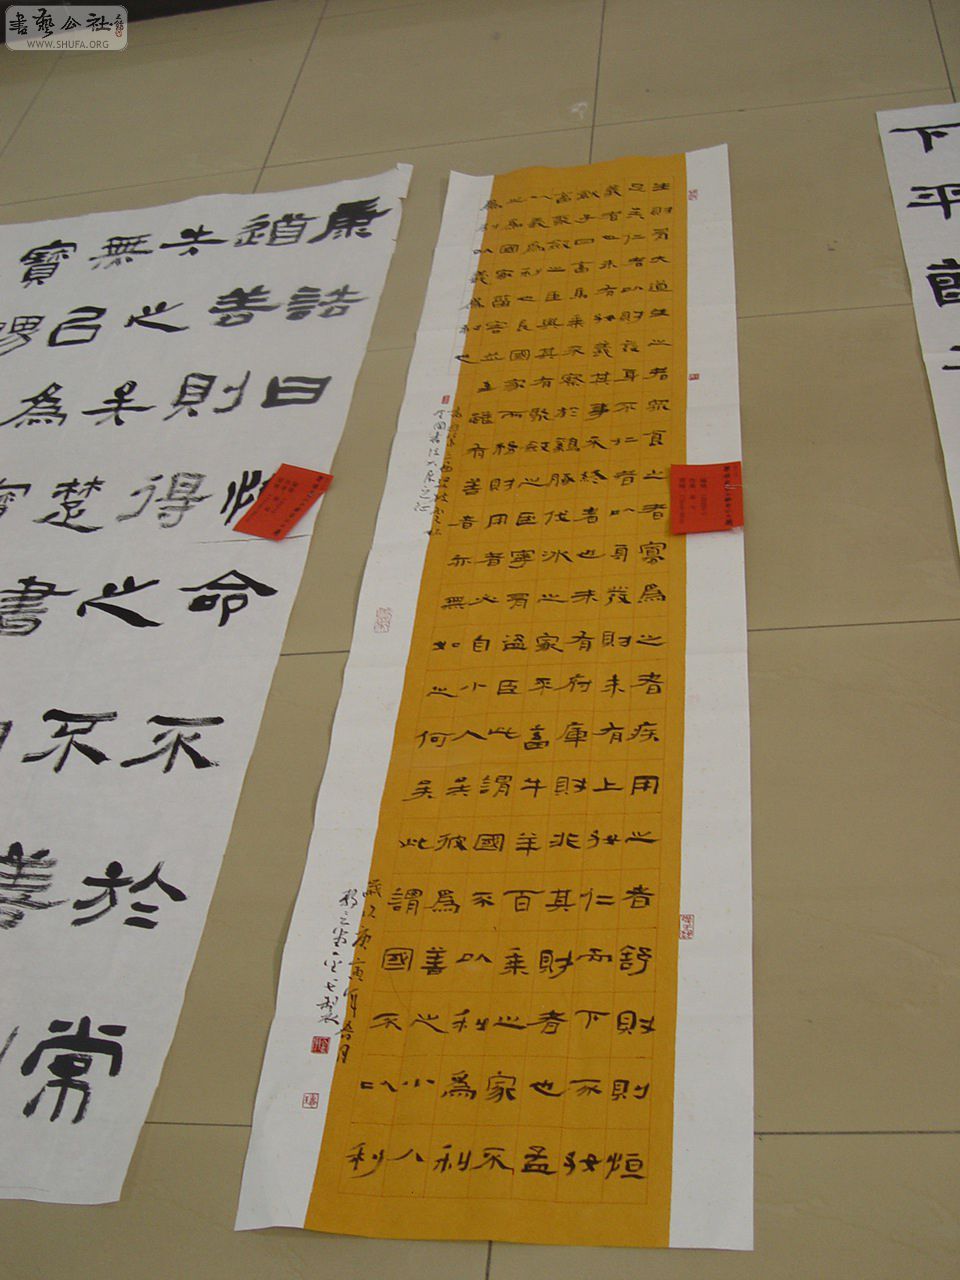 書藝公社
WWW.SHUFA.ORG
生財有大道生之者眾食之者寡為之者疾用之者舒財則恒
足矣仁者以財發身不仁者以身發財未有上好仁而下不好
義者也未有好義其事不終者也未有府庫財非其財者也孟
獻子曰畜馬乘不察於雞豚伐冰之家不畜牛羊百乘之家不
畜聚斂之臣與其有聚斂之臣寧有盜臣此謂國不以利為利
以義為利也長國家而務財用者必自小人矣彼為善之小人
之為國家菑害並至雖有善者亦無如之何矣此謂國不以利
為利以義為利也
歲次庚寅年春月
康誥曰惟命不於常
道善則得之不善
失之矣楚書
無己為
寶
下平